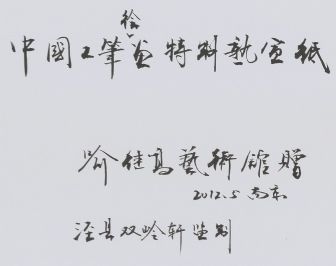 中國工筆绘画特制熟宣纸
喻继高藝術館贈
2012.5 南京
泾县双岭轩监制